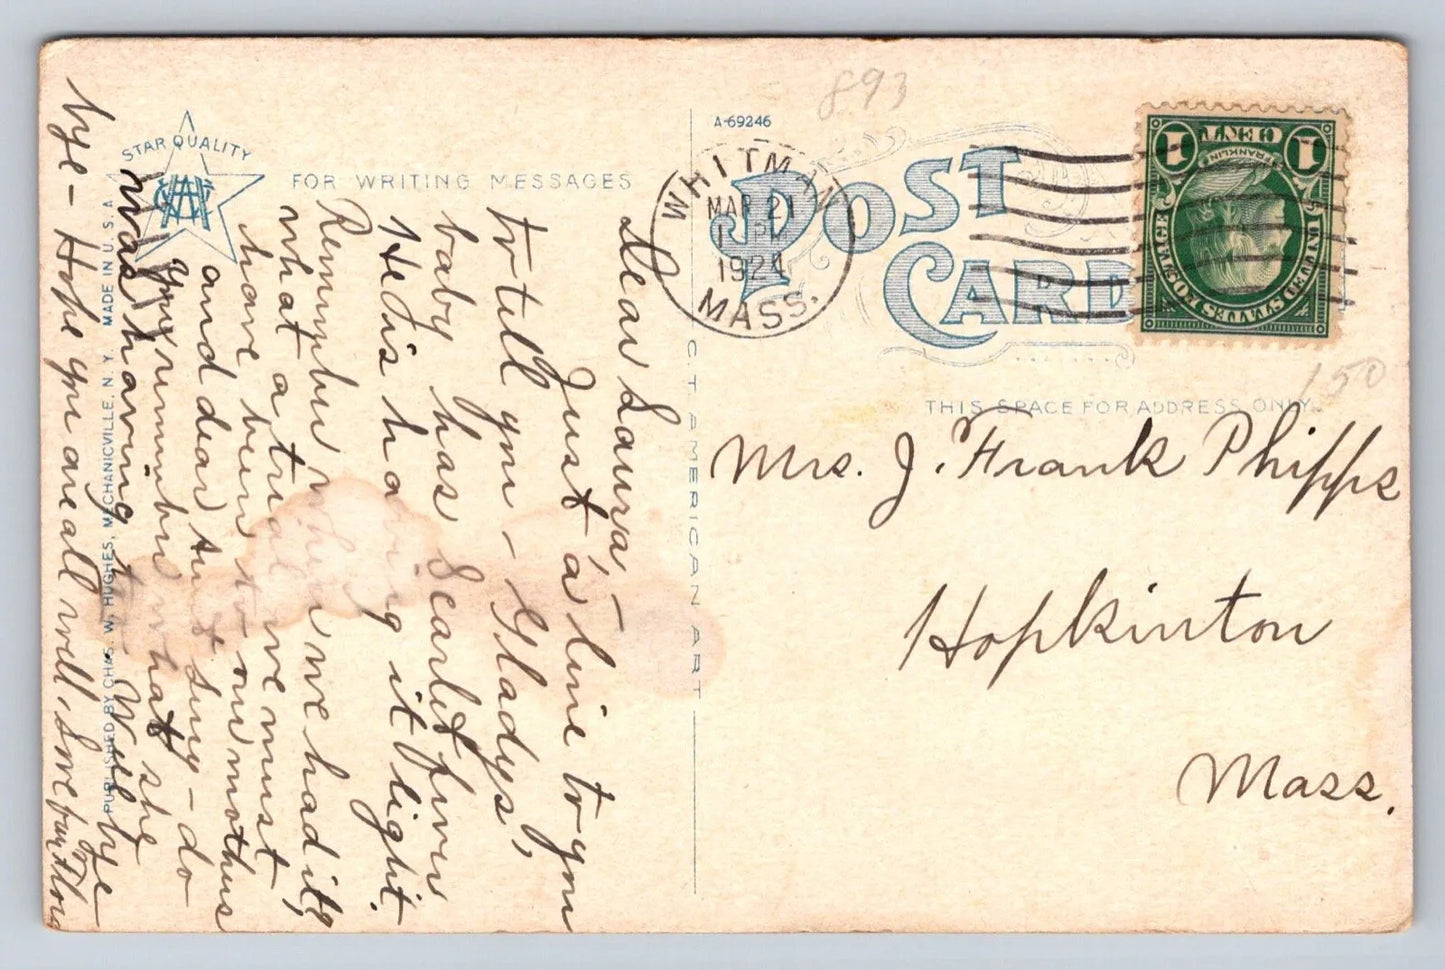 893
STAR QUALITY
FOR WRITING MESSAGES
A-69246
POST
CARD
WHITMAN
MAR 21
1 PM
1924
MASS.
UNITED STATES POSTAGE
FRANKLIN
1 CENT 1
150
THIS SPACE FOR ADDRESS ONLY
Mrs. J. Frank Phipps
Hopkinton
Mass.
C T AMERICAN ART
PUBLISHED BY CHAS. W. HUGHES, MECHANICVILLE, N. Y. MADE IN U. S. A.
Dear Laura,-
Just a line to you
to tell you - Gladys',
baby has Scarlet fever
He is having it light.
Remember when we had it,
what a trial we must
have been to our mothers
and dear Aunt Susy - do
you remember what she
was having ? Well bye
bye - Hope you are all well. Love from Flora